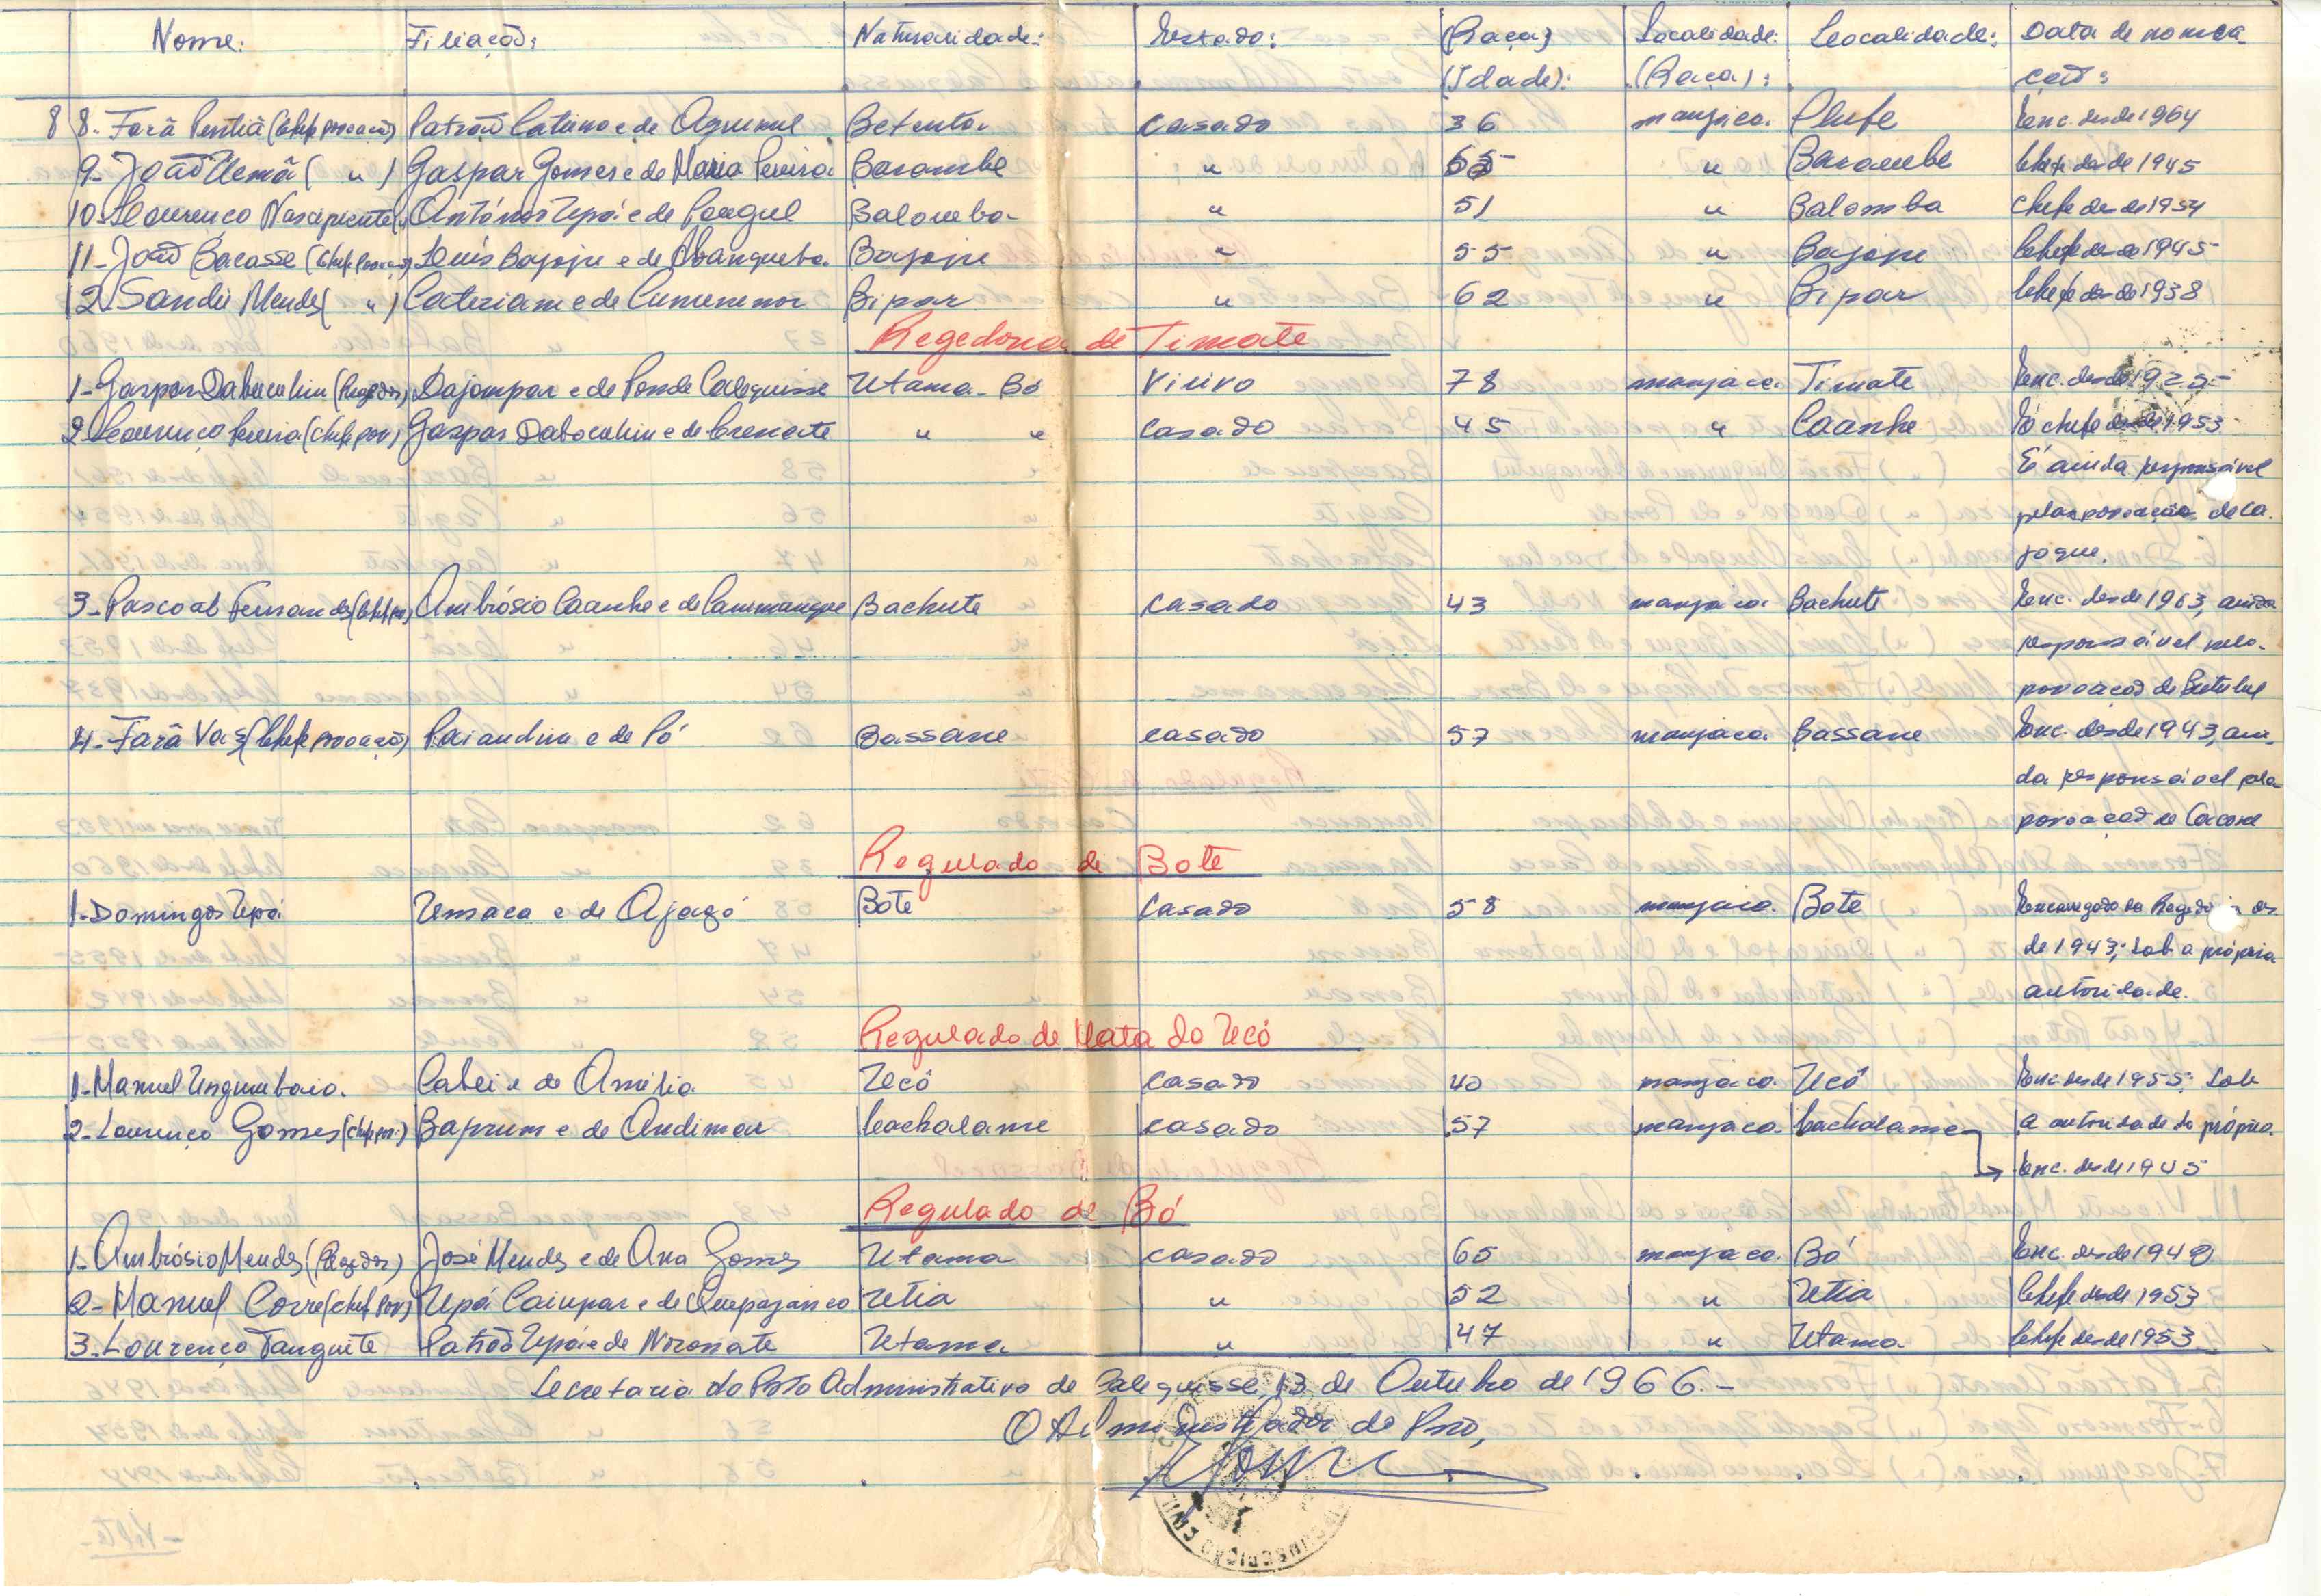 Nome: Filiação: Naturalidade: Estado: (Raça) Localidade: Localidade: Data de nomea-
(Idade): (Raça): ção:
8 8- Farã (Chefe povoação) Patrão Catumo e de Betenta- casado 36 manjaco. Enc. desde 1964
9- João (") Gaspar Gomes e de Maria Pereira Barambe " 65 " Barambe Chefe desde 1945
10- Lourenço Nascimento(") António Upá e de Pongul Balomba- " 51 " Balomba Chefe desde 1954
11- João Bacasse (Chefe povoação) Luís Bajope e de Bajope " 55 " Bajope Chefe desde 1945
12- Sandú Mendes( ") e de Bipar " 62 " Bipar Chefe desde 1938
Regedoria de Timate
1- Gaspar Dabucuhim (Regedor) Dajompar e de Ponde Calequisse Utama- Bó Viúvo 78 manjaco. Timate Enc. desde 1925-
2 Lourenço Pereira (Chefe pov) Gaspar Dabocuhim e de Crenate " " casado 45 " Caanhe É chefe desde 1953
É ainda responsável
pelas povoação de Ca-
joque.
3- Pascoal Fernandes (Chef pov) Ambrósio Caanhe e de Bachute casado 43 manjaco. Bachute Enc. desde 1963, ainda
responsável pela-
povoação de
4- Farã Vaz (Chefe povoação) Paiandim e de Pó Bassane casado 57 manjaco. Bassane Enc. desde 1943, ain-
da responsável pela
povoação de Cacone
Regulado de Bote
1- Domingos Upá Umaca e de Ajagó Bote casado 58 manjaco. Bote Encarregado da Regedoria des-
de 1943; sob a própria
autoridade.
Regulado de Mata do Ucó
1- Manuel Ungumbaio. Cabei e de Amélia Ucó casado 40 manjaco. Ucó Enc. desde 1955; sob
2- Lourenço Gomes (chefe pov:) Baprum e de Andimor Cachalame casado 57 manjaco. Cachalame a autoridade do próprio.
Enc. desde 1945
Regulado de Bó
1- Ambrósio Mendes (Regedor) José Mendes e de Ana Gomes Utama casado 65 manjaco. Bó Enc. desde 1949
2- Manuel Corre (chef pov) Upá Caiupar e de Quepajanco Utia " 52 " Utia Chefe desde 1953
3- Lourenço Tanguite Patrão Upá e de Noronate Utama " 47 " Utama Chefe desde 1953
Secretaria do Posto Administrativo de Calequisse, 13 de Outubro de 1966.-
O Administrador de Posto,